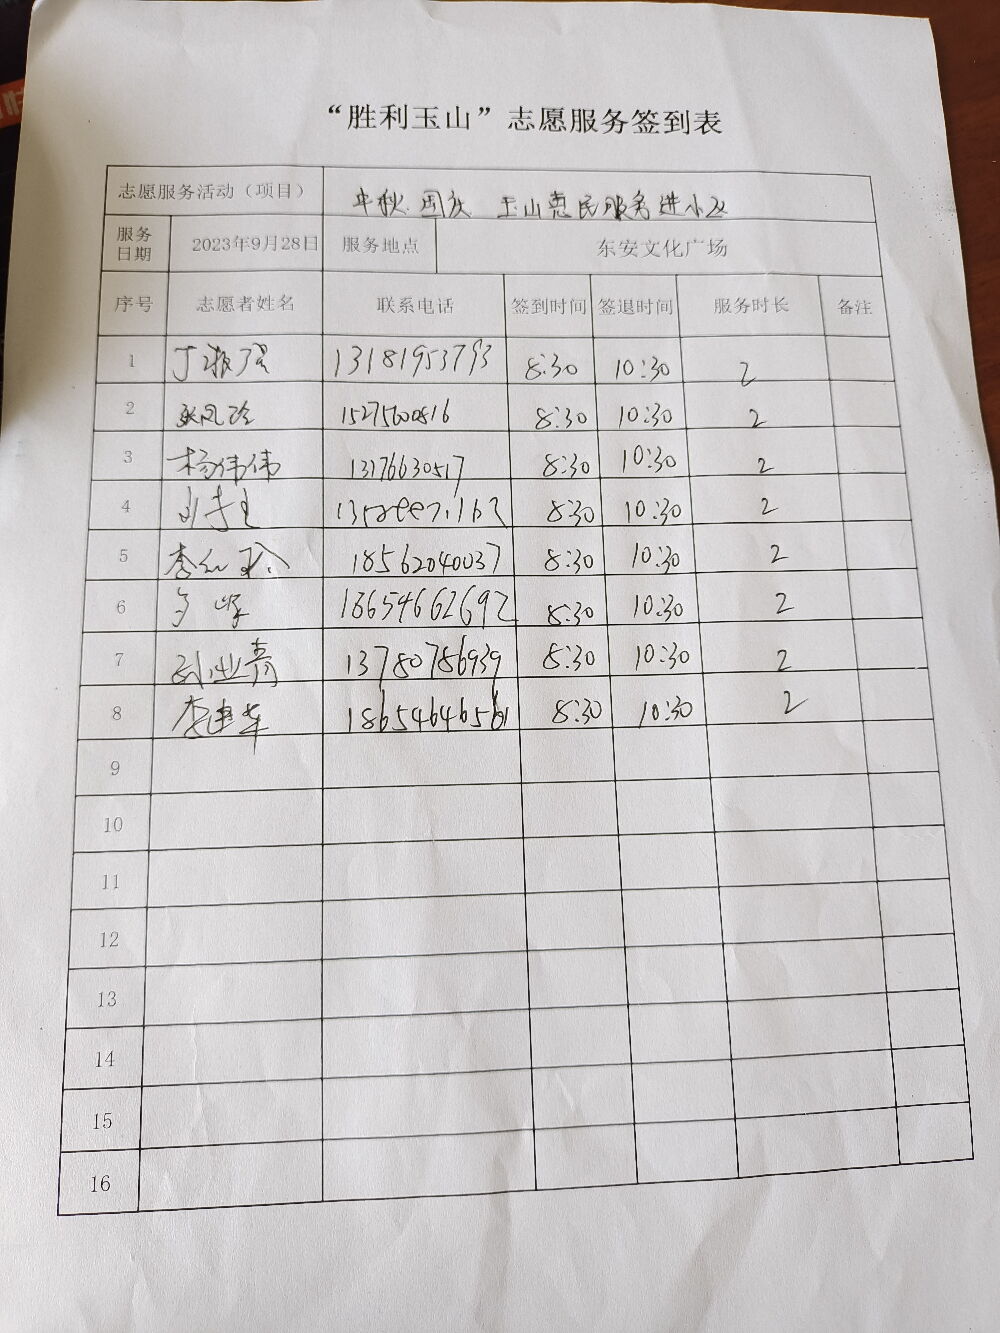 “胜利玉山”志愿服务签到表
志愿服务活动（项目） 中秋 国庆 玉山惠民服务进小区
服务日期 2023年9月28日 服务地点 东安文化广场
序号 志愿者姓名 联系电话 签到时间 签退时间 服务时长 备注
1 丁淑 13181953793 8:30 10:30 2
2 15275600816 8:30 10:30 2
3 杨伟伟 13176630517 8:30 10:30 2
4 8:30 10:30 2
5 李红玲 18562040037 8:30 10:30 2
6 18654662692 8:30 10:30 2
7 青 13780786939 8:30 10:30 2
8 李建华 8:30 10:30 2
9
10
11
12
13
14
15
16